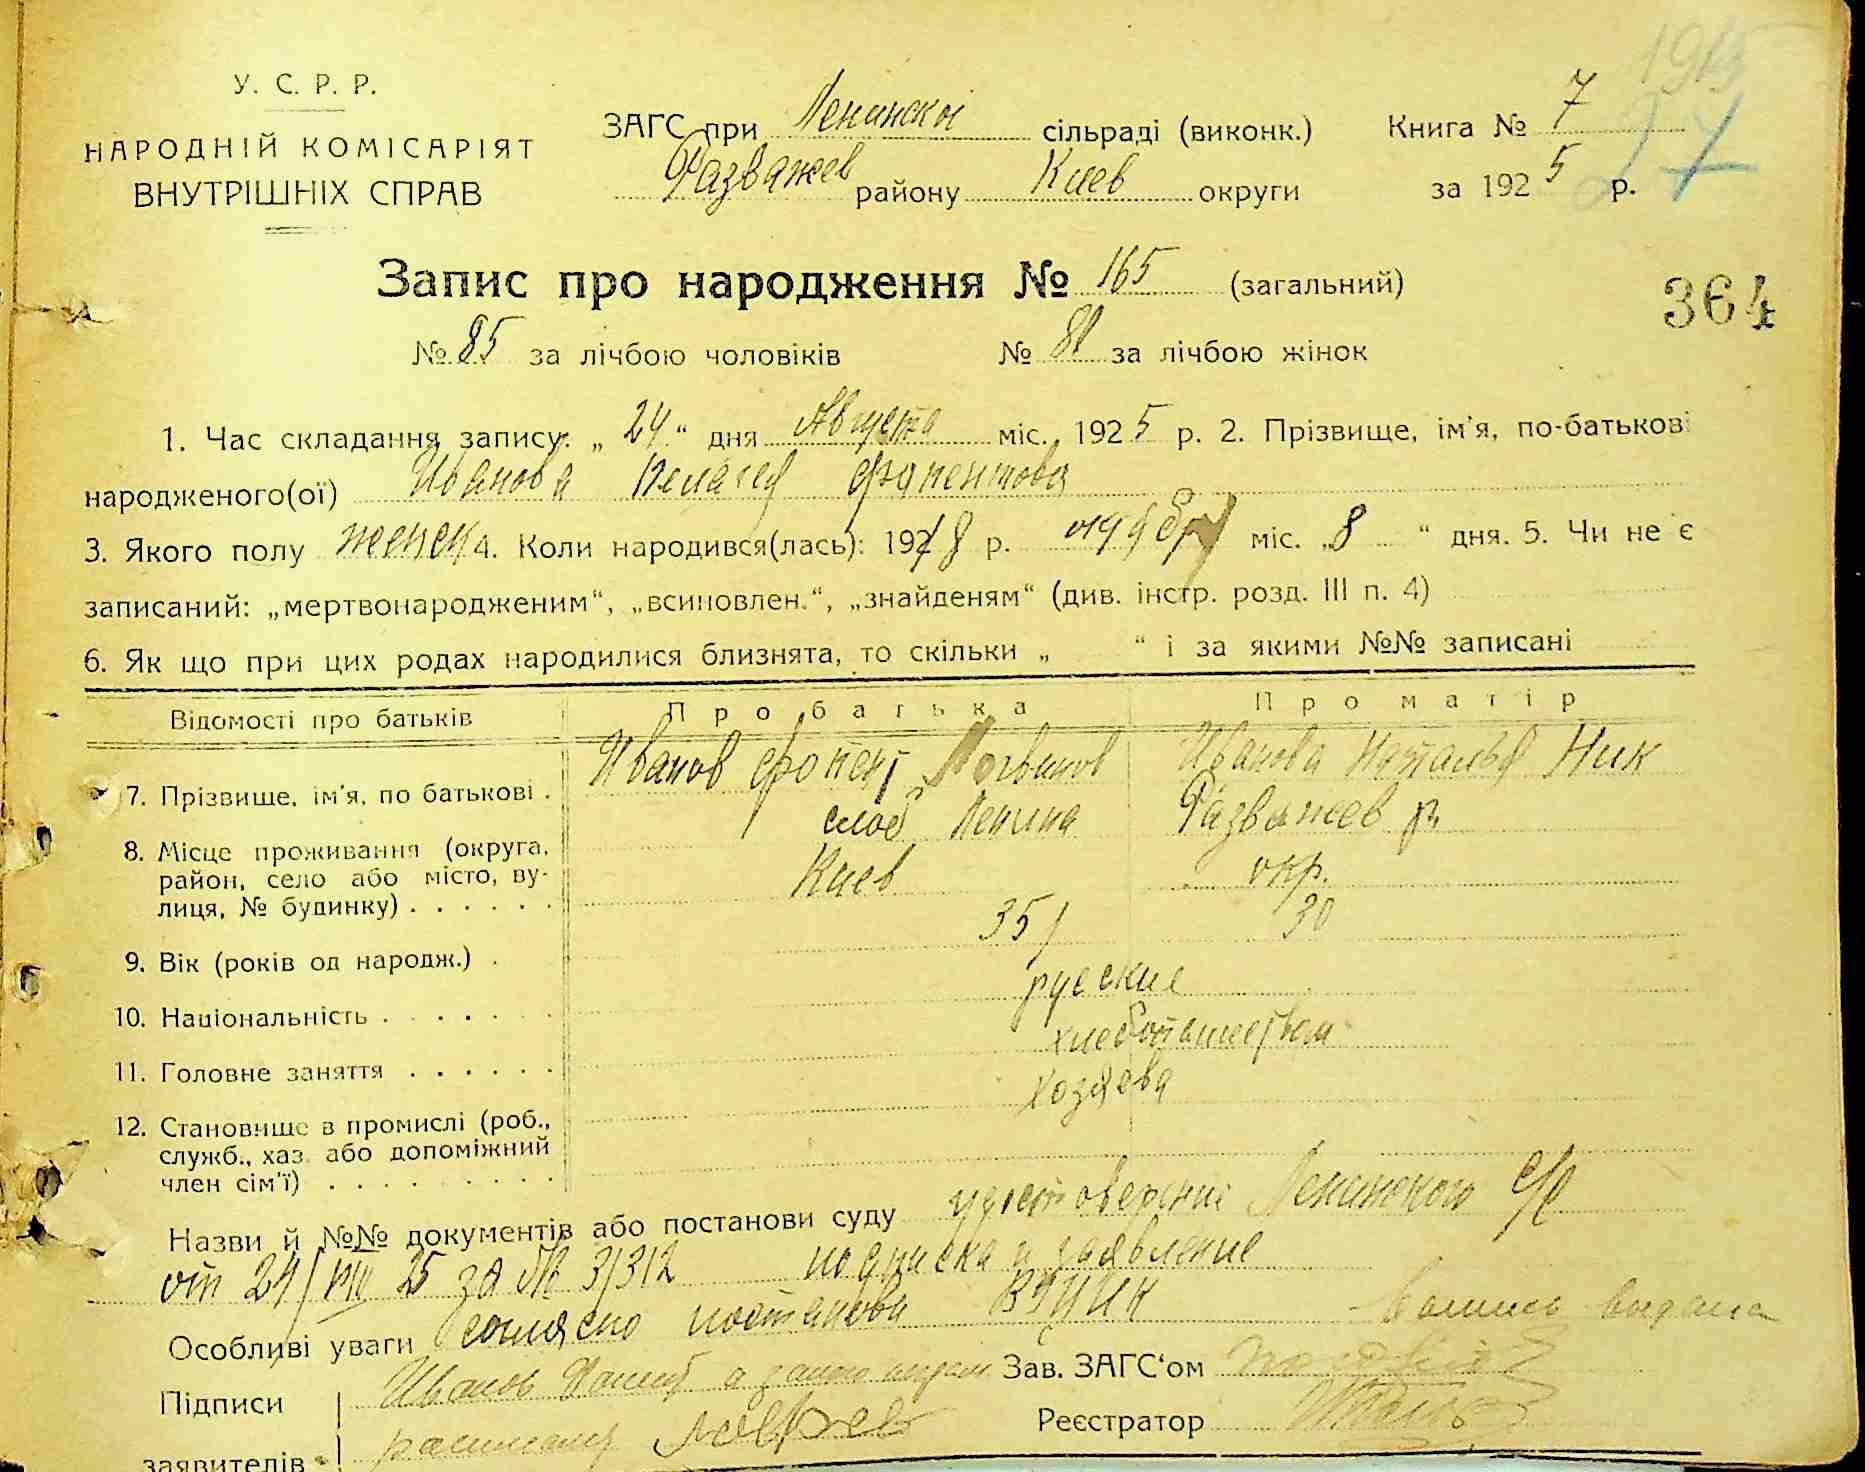 У. С. Р. Р.
НАРОДНІЙ КОМІСАРІЯТ
ВНУТРІШНІХ СПРАВ
ЗАГС при Ленинскої сільраді (виконк.) Книга № 7
Розважев району Киев округи за 1925 р.
27
Запис про народження № 165 (загальний)
364
№ 85 за лічбою чоловіків № 80 за лічбою жінок
1. Час складання запису: „ 24 “ дня Августа міс. 1925 р. 2. Прізвище, ім'я, по-батькові
народженого(ої) Иванова Пелагея
3. Якого полу женск 4. Коли народився(лась): 1918 р. октября міс. „ 8 “ дня. 5. Чи не є
записаний: „мертвонародженим“, „всиновлен.“, „знайденям“ (див. інстр. розд. III п. 4)
6. Як що при цих родах народилися близнята, то скільки „ “ і за якими №№ записані
Відомості про батьків Про батька Про матір
7. Прізвище, ім'я, по батькові . Иванов Логвинов Иванова Наталья Ник
слоб Ленина Розважев р
8. Місце проживання (округа, район, село або місто, вулиця, № будинку) . . . . . . Киев окр.
9. Вік (років од народж.) . 35 30
10. Національність . . . . . . . русские
11. Головне заняття . . . . . . хлебопашеством
12. Становище в промислі (роб., служб., хаз. або допоміжний член сім'ї) . . . . . . . . . хозяева
Назви й №№ документів або постанови суду удостоверение Ленинского с/с
от 24/VIII 25 за № 3/312 подписка и заявление
Особливі уваги согласно постанови ВУЦИК выдана
Підписи Иванов Зав. ЗАГС'ом
заявителів Реєстратор